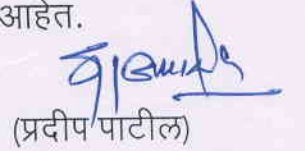 आहेत.
(प्रदीप पाटील)